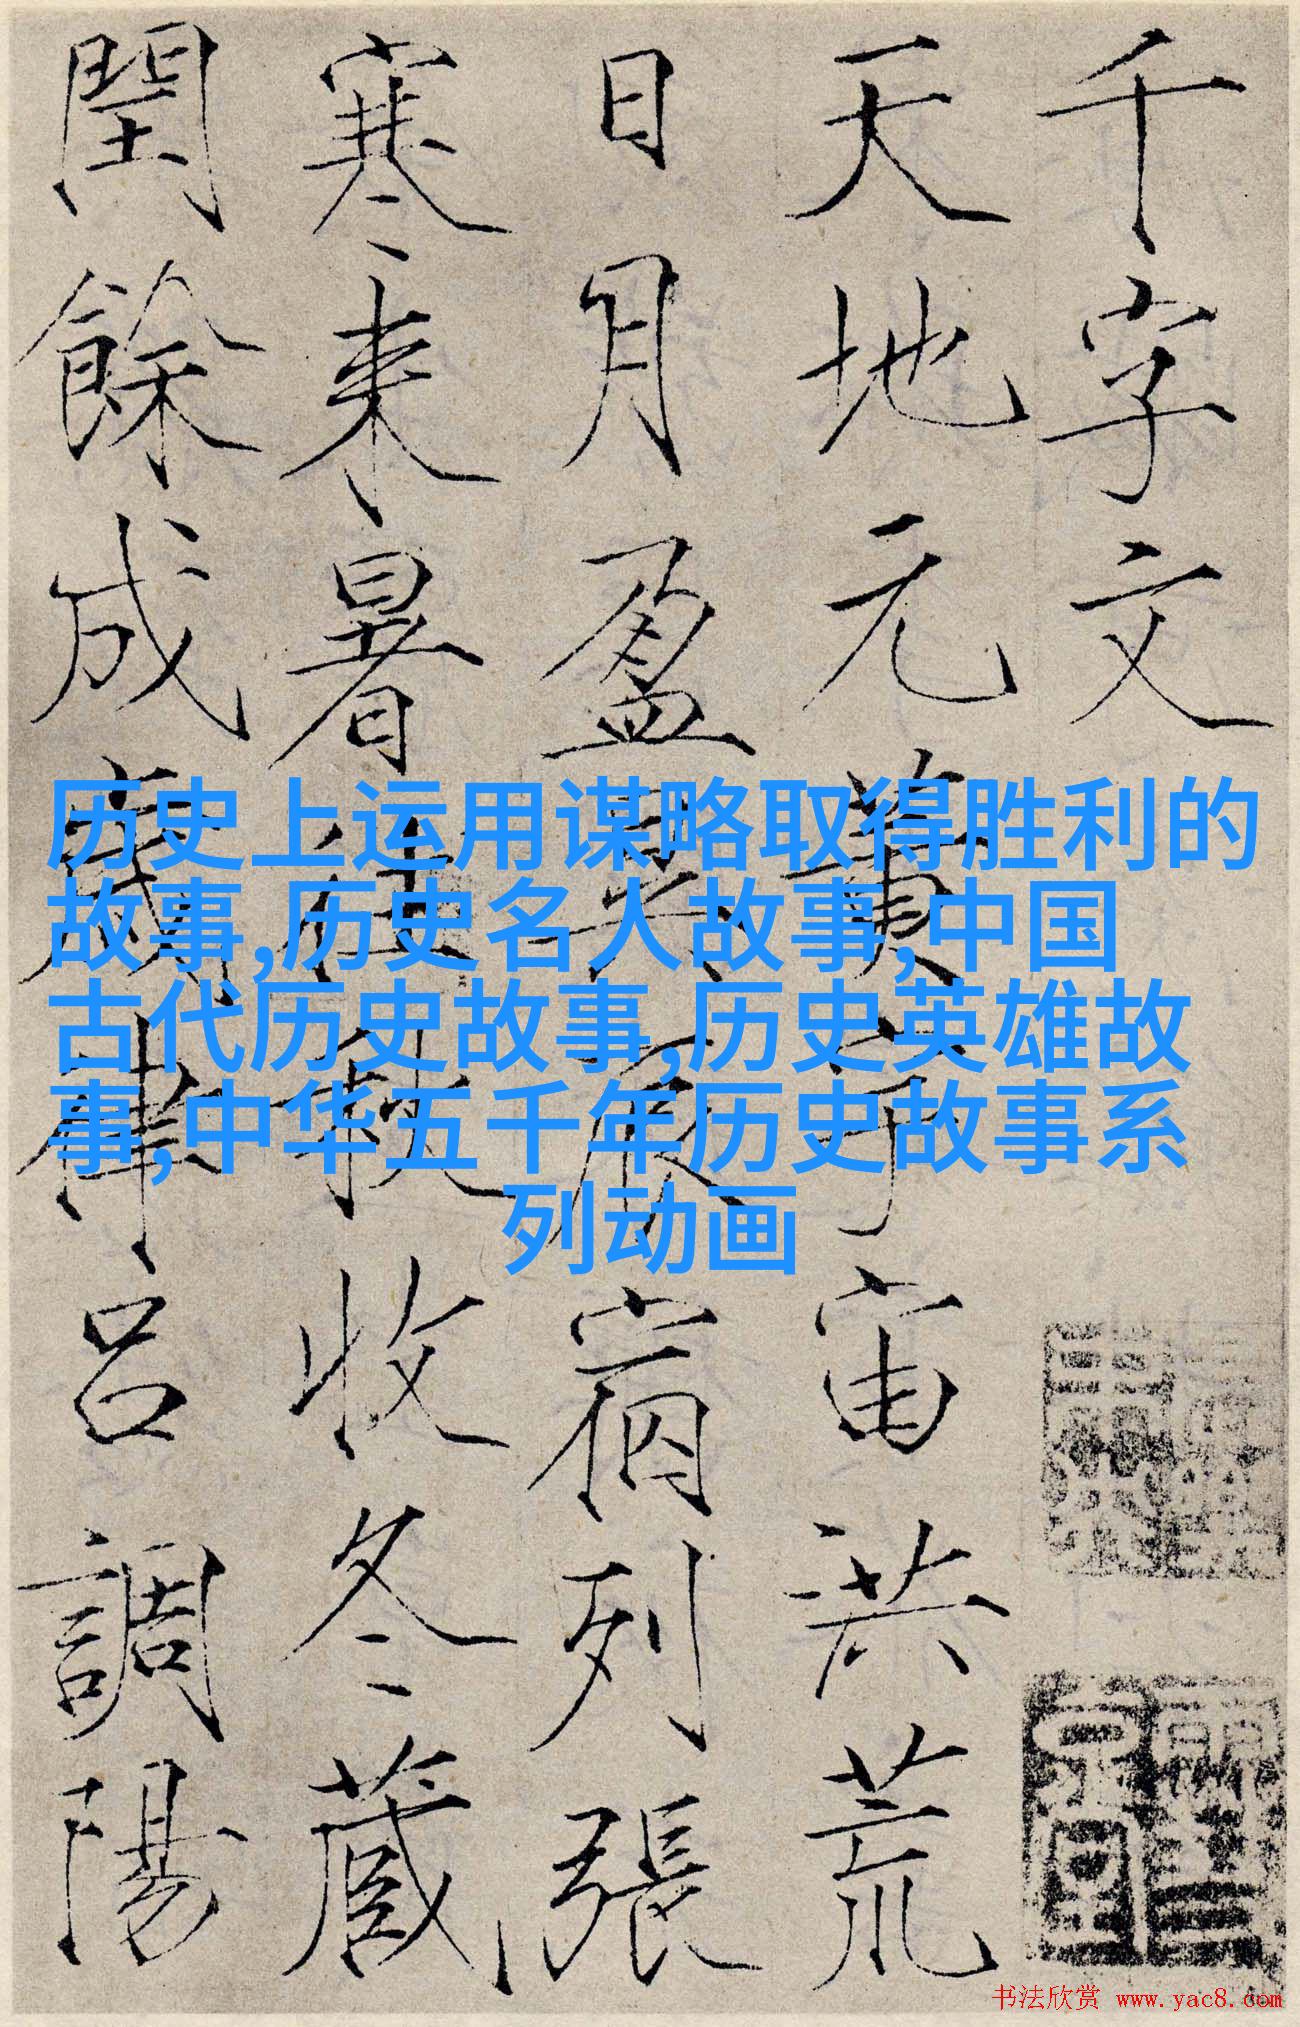 千字文
天地元黃宇宙洪荒
日月盈昃辰宿列張
寒来暑往秋收冬藏
閏餘成歲律吕調陽
历史上运用谋略取得胜利的
故事,历史名人故事,中国
古代历史故事,历史英雄故
事,中华五千年历史故事系
列动画
书法欣赏 www.yac8.com